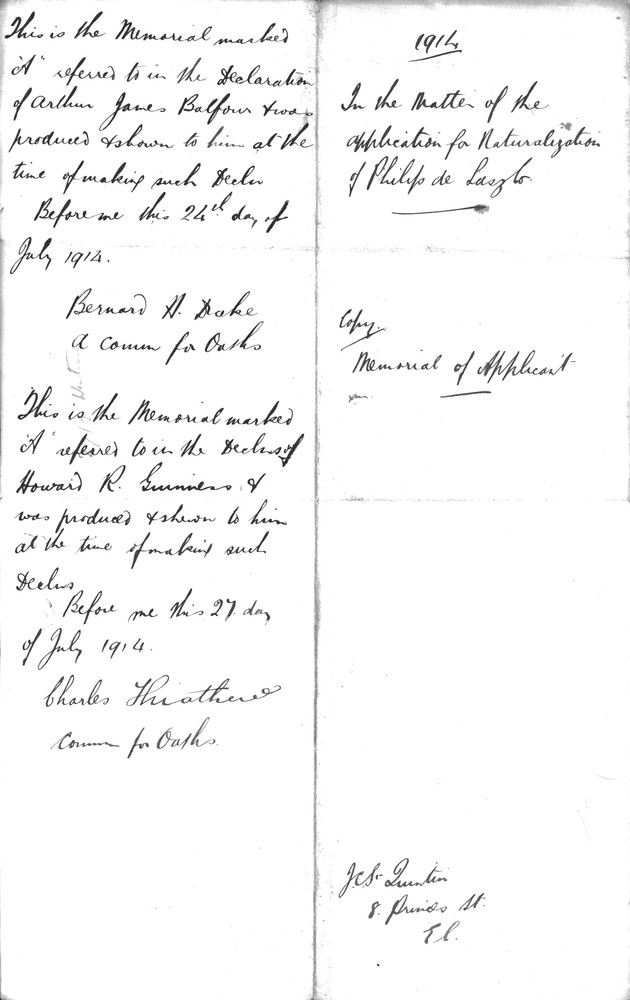 This is the Memorial marked
"A" referred to in the Declaration
of Arthur James Balfour & was
produced & shown to him at the
time of making such Decln
Before me this 24th day of
July 1914.
Bernard H. Drake
A Comm for Oaths
This is the Memorial marked
"A" referred to in the Declns of
Howard R. Guinness &
was produced & shewn to him
at the time of making such
Declns
Before me this 27 day
of July 1914.
Charles
Comm for Oaths.
1914
In the Matter of the
application for Naturalization
of Philip de Laszlo.
Copy.
Memorial of Applicant
J C St Quintin
8. Princes St.
E C.